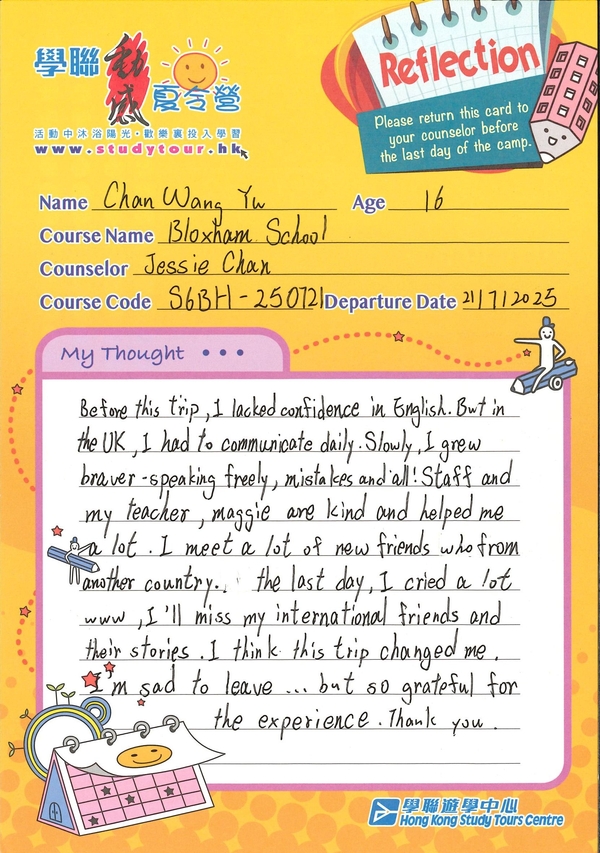 學聯 動感 夏令營
活動中沐浴陽光・歡樂裏投入學習
www.studytour.hk
Reflection
Please return this card to
your counselor before
the last day of the camp.
Name Chan Wang Yu Age 16
Course Name Bloxham School
Counselor Jessie Chan
Course Code S6BH-250721 Departure Date 21/7/2025
My Thought •••
Before this trip, I lacked confidence in English. But in
the UK, I had to communicate daily. Slowly, I grew
braver - speaking freely, mistakes and all! Staff and
my teacher, maggie are kind and helped me
a lot. I meet a lot of new friends who from
another country.. the last day, I cried a lot
www, I'll miss my international friends and
their stories. I think this trip changed me.
I'm sad to leave ... but so grateful for
the experience. Thank you.
學聯遊學中心
Hong Kong Study Tours Centre